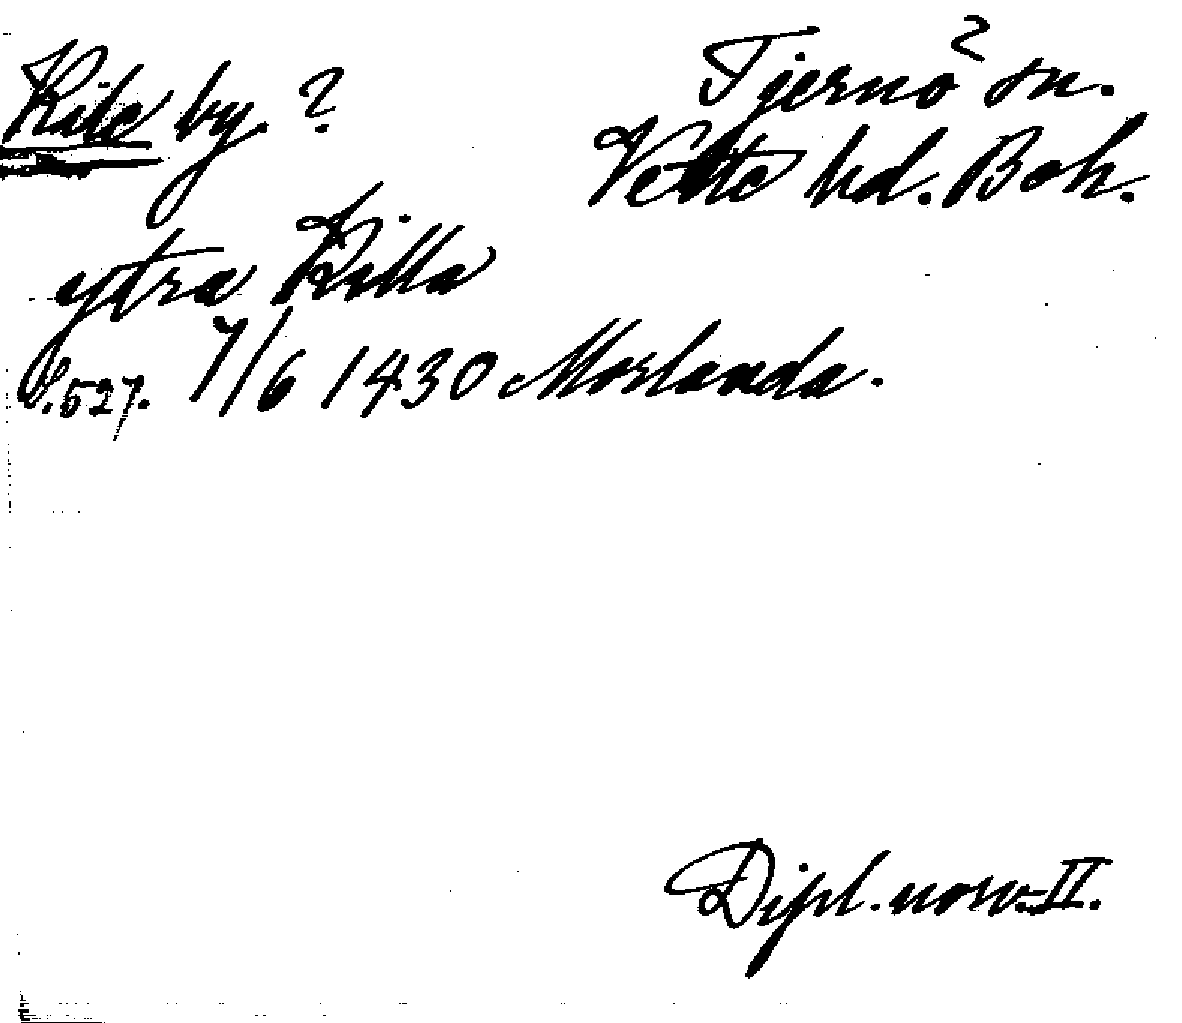 Kile by. ?
Tjernö ? sn.
Vette hd. Boh.
ytra Killa
S. 527. 7/6 1430 Morlanda.
Dipl. norv. II.